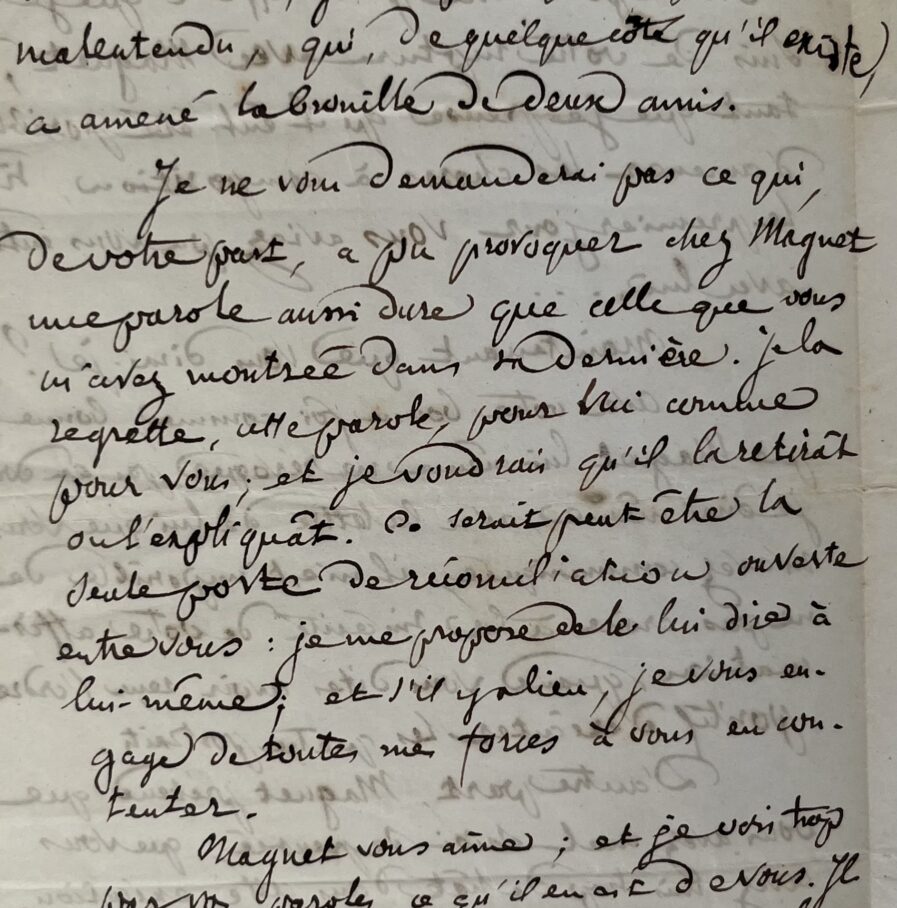 malentendu, qui, de quelque côté qu'il existe,
a amené la brouille de deux amis.
Je ne vous demanderai pas ce qui,
de votre part, a pu provoquer chez Maguet
une parole aussi dure que celle que vous
m'avez montrée dans sa dernière. je la
regrette, cette parole, pour lui comme
pour vous ; et je voudrais qu'il la retirât
ou l'expliquât. Ce serait peut être la
seule porte de réconciliation ouverte
entre vous : je me propose de le lui dire à
lui-même ; et s'il y a lieu, je vous en-
gage de toutes mes forces à vous en con-
tenter.
Maguet vous aime ; et je vois trop
par vos paroles ce qu'il en est de vous. Il